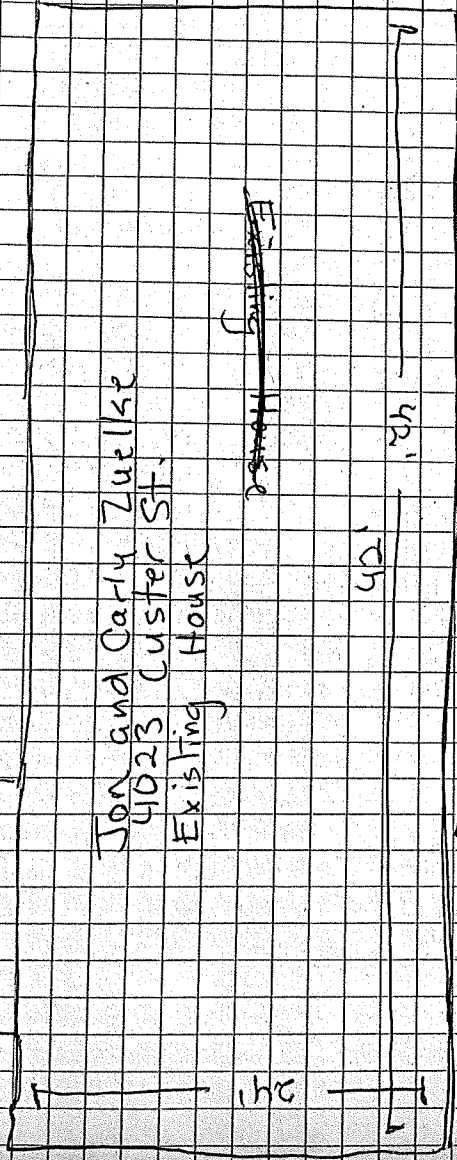 Jon and Carly Zuelke
4023 Custer St.
Existing House
Existing House
42'
42'
24'